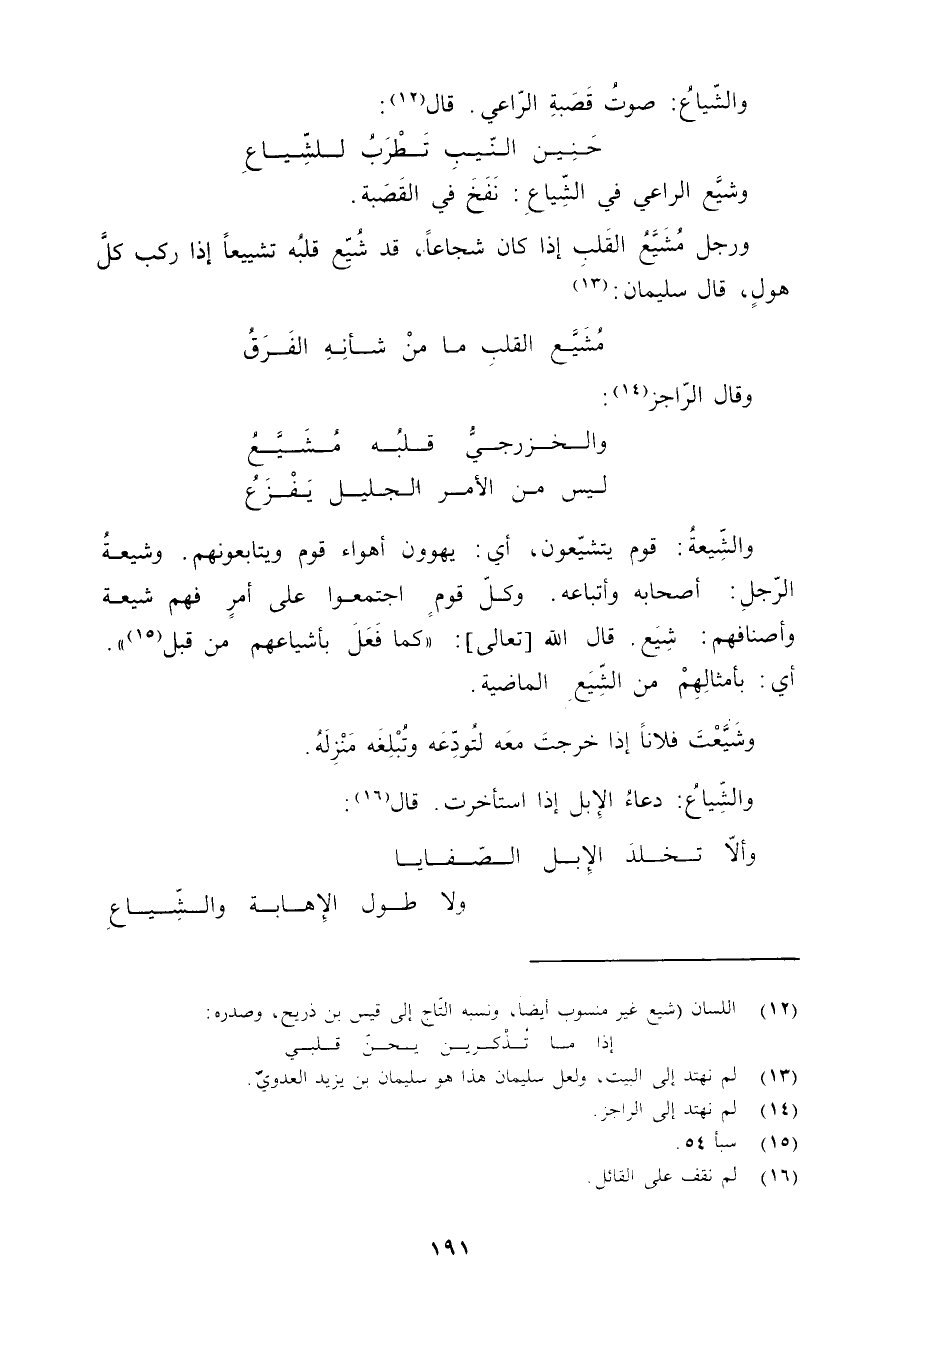 والشّياعُ: صوتُ قَصَبةِ الرّاعي. قال(١٢):
حَنِين النّيبِ تَطْرَبُ للشِّياعِ
وشيَّع الراعي في الشِّياعِ: نَفَخَ في القَصَبة.
ورجل مُشَيَّعُ القَلبِ إذا كان شجاعاً، قد شُيّع قلبُه تشييعاً إذا ركب كلَّ
هولٍ، قال سليمان:(١٣)
مُشَيَّع القلبِ ما منْ شأنِهِ الفَرَقُ
وقال الرّاجز(١٤):
والخزرجيُّ قلبُه مُشَيَّعُ
ليس من الأمر الجليل يَفْزَعُ
والشِّيعةُ: قوم يتشيّعون، أي: يهوون أهواء قوم ويتابعونهم. وشيعةُ
الرّجلِ: أصحابه وأتباعه. وكلّ قومٍ اجتمعوا على أمرٍ فهم شيعة
وأصنافهم: شِيَع. قال الله [تعالى]: «كما فَعَلَ بأشياعهم من قبل(١٥)».
أي: بأمثالِهِمْ من الشِّيَعِ الماضية.
وشَيَّعْتَ فلاناً إذا خرجتَ معَه لتُودّعَه وتُبْلِغَه مَنْزِلَهُ.
والشِّياعُ: دعاءُ الإبل إذا استأخرت. قال(١٦):
وألاّ تخلدَ الإبل الصّفايا
ولا طول الإهابة والشِّياعِ
(١٢) اللسان (شيع غير منسوب أيضاً، ونسبه التّاج إلى قيس بن ذريح، وصدره:
إذا ما تُذْكرين يحنّ قلبي
(١٣) لم نهتد إلى البيت، ولعل سليمان هذا هو سليمان بن يزيد العدويّ.
(١٤) لم نهتد إلى الراجز.
(١٥) سبأ ٥٤.
(١٦) لم نقف على القائل.
١٩١